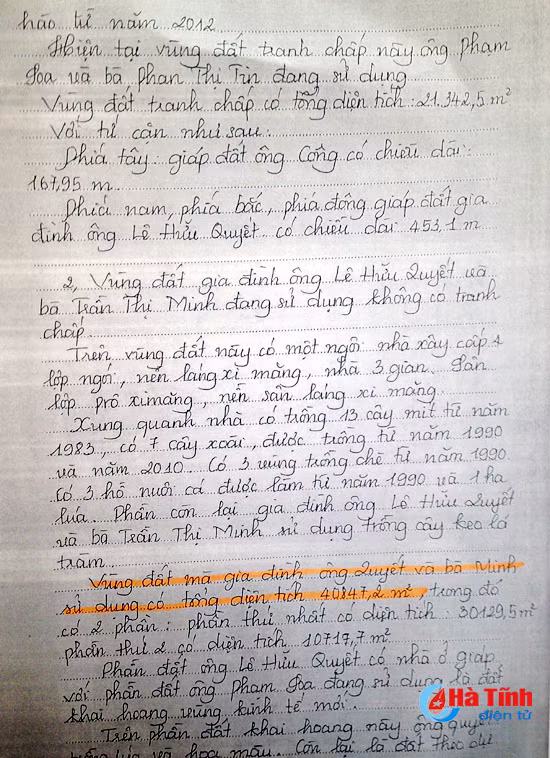 hào từ năm 2012
Hiện tại vùng đất tranh chấp này ông Phạm
Hoa và bà Phan Thị Tin đang sử dụng
Vùng đất tranh chấp có tổng diện tích: 21.342,5 m²
Với tứ cận như sau:
Phía tây: giáp đất ông Công có chiều dài:
167,95 m.
Phía nam, phía bắc, phía đông giáp đất gia
đình ông Lê Hữu Quyết có chiều dài 453,1 m
2, Vùng đất gia đình ông Lê Hữu Quyết và
bà Trần Thị Minh đang sử dụng không có tranh
chấp.
Trên vùng đất này có một ngôi nhà xây cấp 4
lớp ngói, nền láng xi măng, nhà 3 gian. Sân
lớp prô ximăng, nền sân láng xi măng.
Xung quanh nhà có trồng 13 cây mít từ năm
1983, có 7 cây xoài, được trồng từ năm 1990
và năm 2010. Có 3 vùng trồng chè từ năm 1990
Có 3 hồ nuôi cá được làm từ năm 1990 và 1 ha
lúa. Phần còn lại gia đình ông Lê Hữu Quyết
và bà Trần Thị Minh sử dụng trồng cây keo lá
tràm.
Vùng đất mà gia đình ông Quyết và bà Minh
sử dụng có tổng diện tích 40847,2 m², trong đó
có 2 phần: phần thứ nhất có diện tích 30129,5 m²
phần thứ 2 có diện tích 10717,7 m²
Phần đất ông Lê Hữu Quyết có nhà ở giáp
với phần đất ông Phạm Hoa đang sử dụng là đất
khai hoang vùng kinh tế mới.
Trên phần đất khai hoang này ông Quyết
trồng lúa và hoa màu. Còn lại là đất theo dự
Hà Tĩnh
điện tử